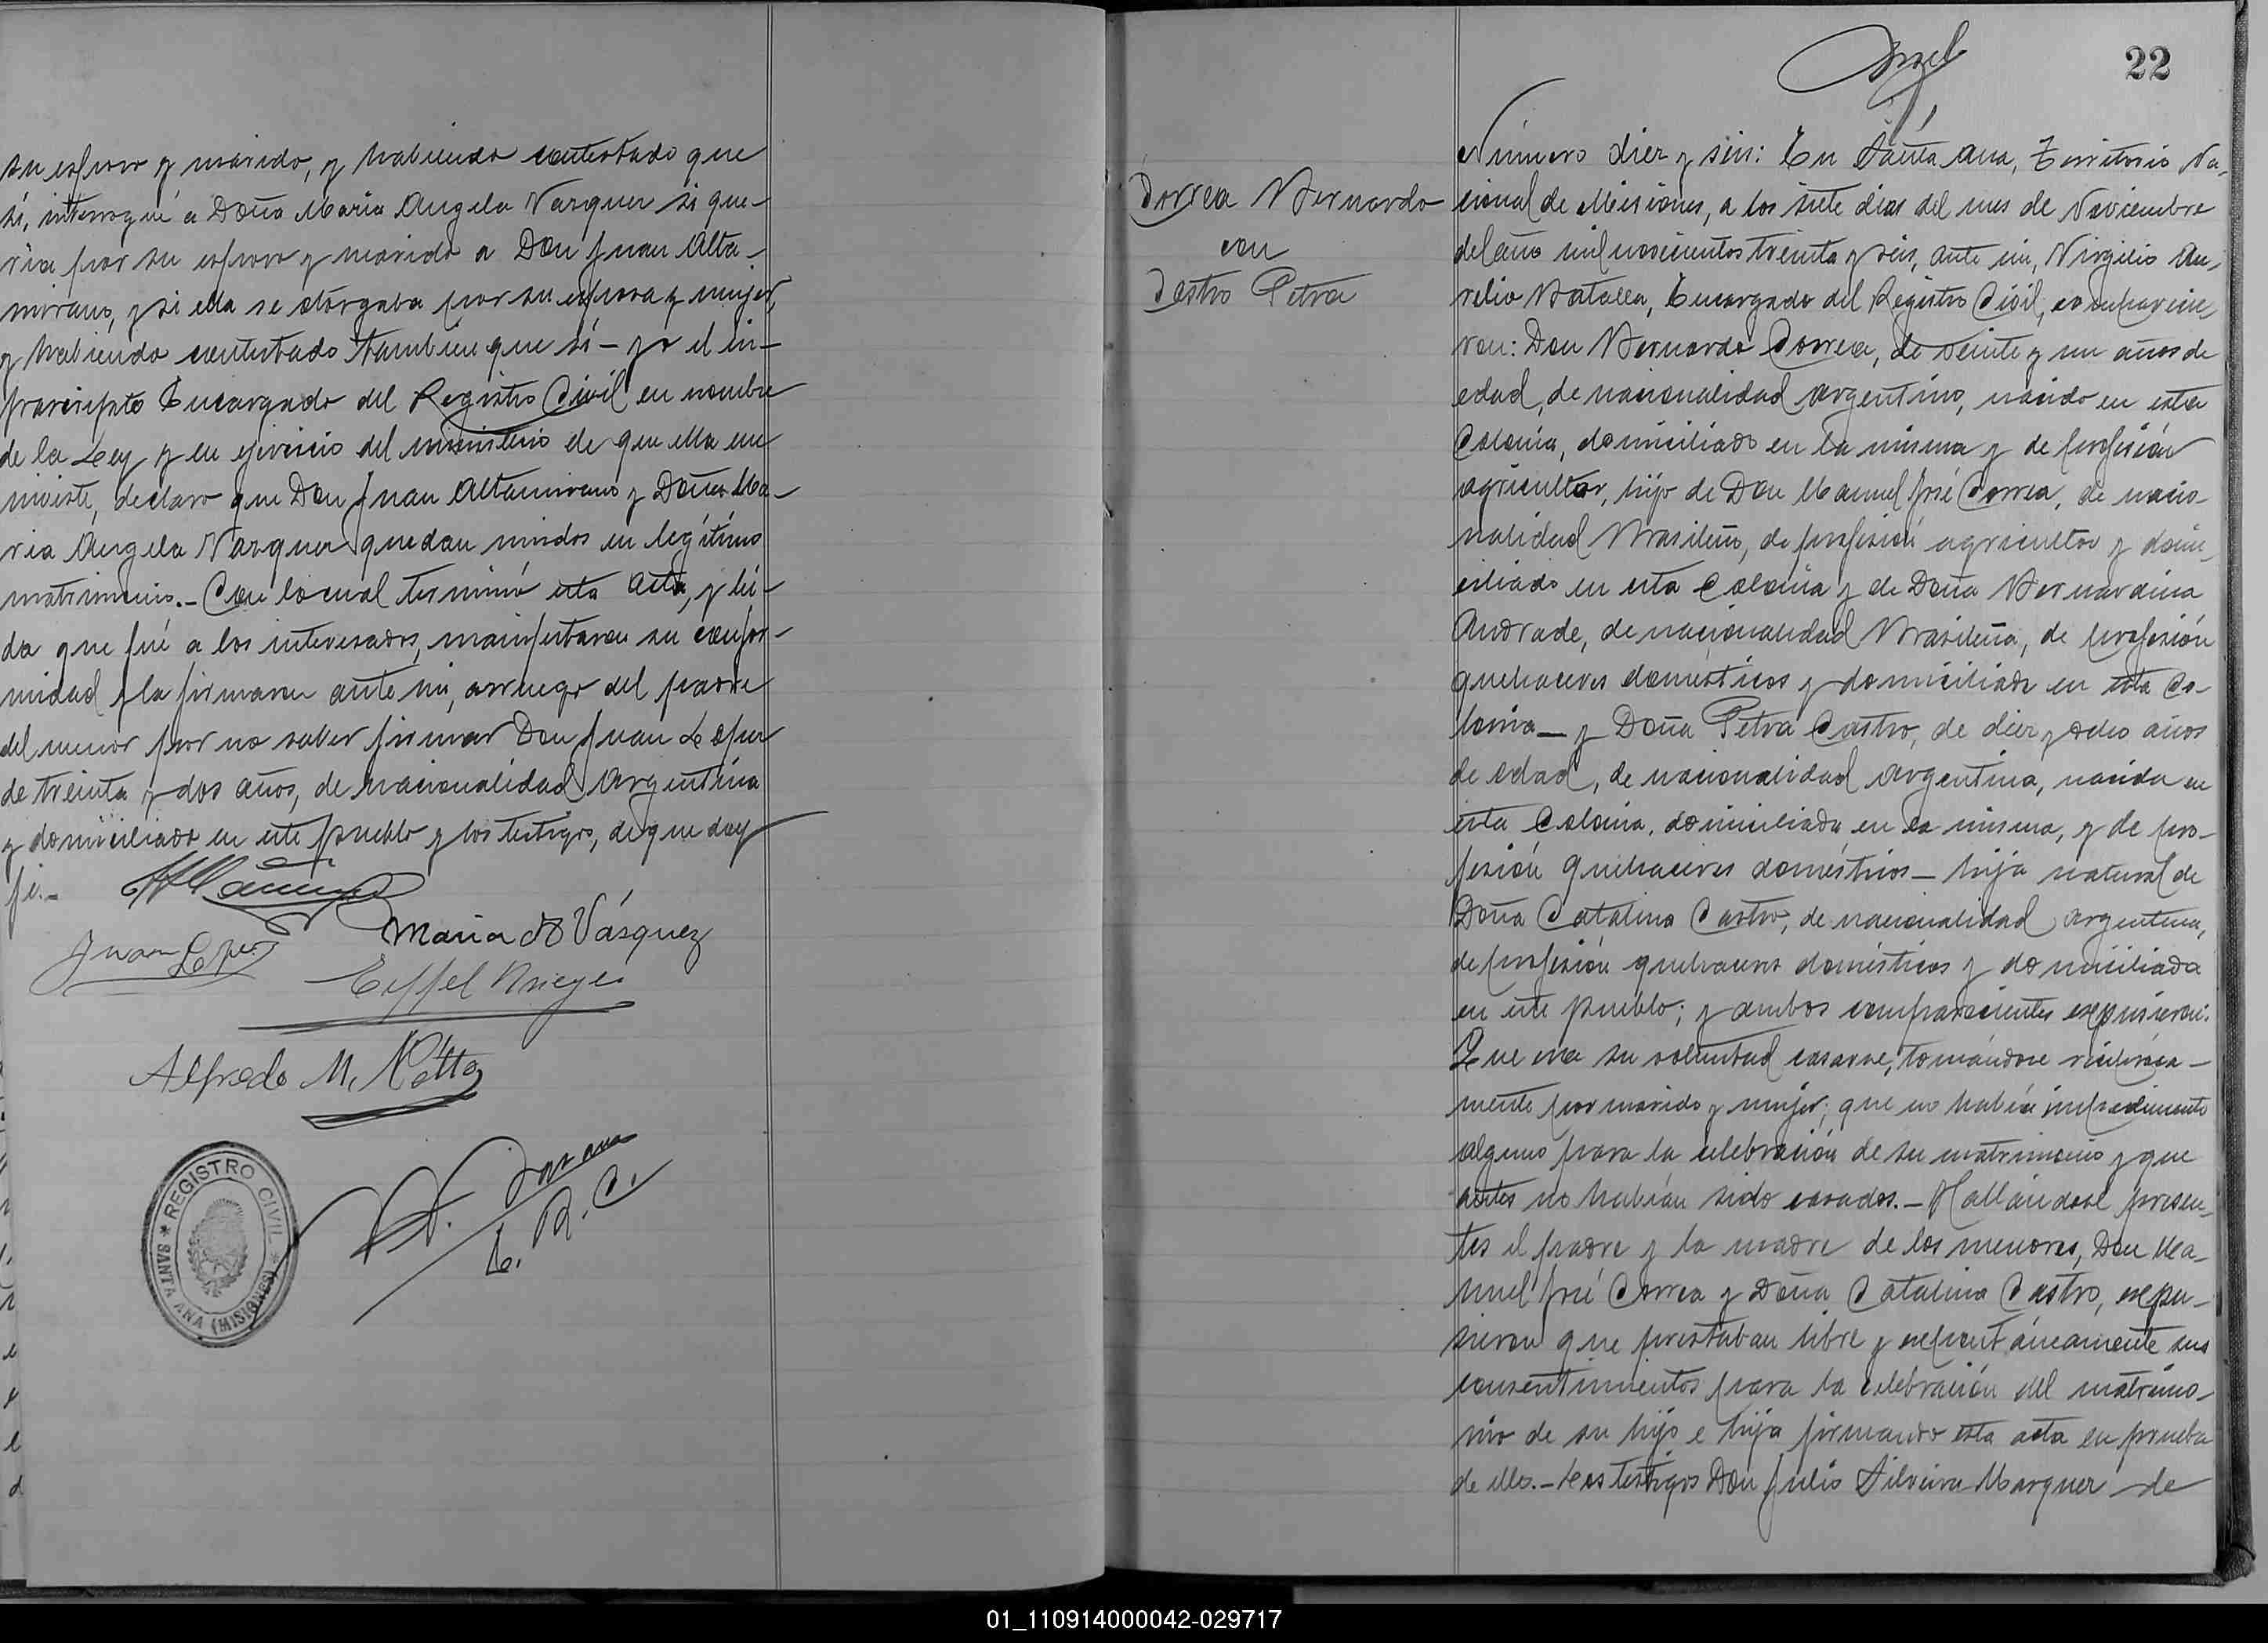 su esposo y marido, y habiendo contestado que
sí, interrogué a Doña Maria Angela Vazquez si que-
ría por su esposo y marido a Don Juan Alta-
mirano, y si ella se otorgaba por su esposa y mujer,
y habiendo contestado también que sí - yo el in-
frascripto Encargado del Registro Civil en nombre
de la Ley y en ejercicio del ministerio de que ella me
inviste, declaro que Don Juan Altamirano y Doña Ma-
ria Angela Vazquez quedan unidos en legítimo
matrimonio.- Con lo cual terminó esta acta, y leí-
da que fué a los interesados, manifestaron su confor-
midad y la firmaron ante mi, a ruego del padre
del menor por no saber firmar Don Juan Lopez
de treinta y dos años, de nacionalidad Argentina
y domiciliado en este pueblo y los testigos, de que doy
fé.-
Maria A Vásquez
Juan Lopez
Eiffel
Alfredo M. Netto
E. R. C.
REGISTRO CIVIL
SANTA ANA (MISIONES)
22
Número diez y seis: En Santa Ana, Territorio Na-
Correa Bernardo
cional de Misiones, a los siete dias del mes de Noviembre
con
del año mil novecientos treinta y seis, ante mi, Virgilio Au-
Castro Petra
relio Batalla, Encargado del Registro Civil, comparecie-
ron: Don Bernardo Correa, de veinte y un años de
edad, de nacionalidad argentino, nacido en esta
Colonia, domiciliado en la misma y de profesión
agricultor, hijo de Don Manuel José Correa, de nacio-
nalidad Brasileño, de profesión agricultor y domi-
ciliado en esta Colonia y de Doña Bernardina
Andrade, de nacionalidad Brasileña, de profesión
quehaceres domésticos y domiciliada en esta Co-
lonia - y Doña Petra Castro, de diez y ocho años
de edad, de nacionalidad Argentina, nacida en
esta Colonia, domiciliada en la misma, y de pro-
fesión quehaceres domésticos - hija natural de
Doña Catalina Castro, de nacionalidad argentina,
de profesión quehaceres domésticos y domiciliada
en este pueblo; y ambos comparecientes expusieron:
Que era su voluntad casarse, tomándose recíproca-
mente por marido y mujer; que no había impedimento
alguno para la celebración de su matrimonio y que
antes no habían sido casados.- Hallándose presen-
tes el padre y la madre de los menores, Don Ma-
nuel José Correa y Doña Catalina Castro, expu-
sieron que prestaban libre y espontáneamente sus
consentimientos para la celebración del matrimo-
nio de su hijo e hija firmando esta acta en prueba
de ello.- Los testigos Don Julio Silveira Marquez de
01_110914000042-029717